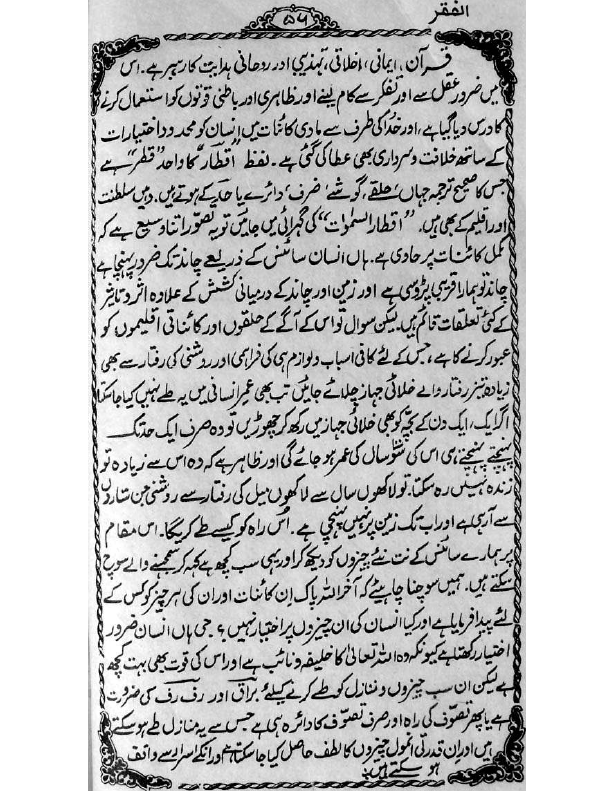 الفقر
۵۶
قرآن، ایمانی، اخلاقی، تہذیبی اور روحانی ہدایت کا رہبر ہے۔ اس
میں ضرور عقل سے اور تفکر سے کام لینے اور ظاہری اور باطنی قوتوں کو استعمال کرنے
کا درس دیا گیا ہے، اور خدا کی طرف سے مادی کائنات میں انسان کو محدود اختیارات
کے ساتھ خلافت و سرداری بھی عطا کی گئی ہے۔ لفظ "اقطار" کا واحد "قطر" ہے
جس کا صحیح ترجمہ جہاں 'حلقے، گوشے' صرف 'دائرے یا حد' کے ہوتے ہیں۔ وہیں سلطنت
اور اقلیم کے بھی ہیں۔ "اقطار السمٰوٰت" کی گہرائی میں جائیں تو یہ تصور اتنا وسیع ہے کہ
مکمل کائنات پر حاوی ہے۔ ہاں انسان سائنس کے ذریعے چاند تک ضرور پہنچا ہے
چاند تو ہمارا قریبی پڑوسی ہے اور زمین اور چاند کے درمیانی کشش کے علاوہ اثر و تاثیر
کے کئی تعلقات قائم ہیں۔ لیکن سوال تو اس کے آگے کے حلقوں اور کائناتی اقلیموں کو
عبور کرنے کا ہے، جس کے لئے کافی اسباب و لوازم ہی کی فراہمی اور روشنی کی رفتار سے بھی
زیادہ تیز رفتار والے خلائی جہاز چلائے جائیں تب بھی عمر انسانی میں یہ طے نہیں کیا جا سکتا
اگر ایک، ایک دن کے بچہ کو بھی خلائی جہاز میں رکھ کر چھوڑیں تو وہ صرف ایک حد تک
پہنچتے پہنچتے ہی اس کی سو سال کی عمر ہو جائے گی اور ظاہر ہے کہ وہ اس سے زیادہ تو
زندہ نہیں رہ سکتا۔ تو لاکھوں سال سے لاکھوں میل کی رفتار سے روشنی جن ستاروں
سے آرہی ہے اور اب تک زمین پر نہیں پہنچی ہے۔ اُس راہ کو کیسے طے کریگا۔ اس مقام
پر ہمارے سائنس کے نت نئے چیزوں کو دیکھ کر اور یہی سب کچھ ہے کہہ کر سمجھنے والے سوچ
سکتے ہیں۔ ہمیں سوچنا چاہیئے کہ آخر اللہ پاک اِن کائنات اور ان کی ہر چیز کو کس کے
لئے پیدا فرمایا ہے اور کیا انسان کی ان چیزوں پر اختیار نہیں؟ جی ہاں انسان ضرور
اختیار رکھتا ہے کیونکہ وہ اللہ تعالیٰ کا خلیفہ و نائب ہے اور اس کی قوت بھی بہت کچھ
ہے لیکن ان سب چیزوں و منازل کو طے کرنے کیلئے براق اور رف رف کی ضرورت
ہے یا پھر تصوف کی راہ اور صرف تصوف کا دائرہ ہی ہے جس سے یہ منازل طے ہو سکتے
ہیں اور اِن قدرتی انمول چیزوں کا لطف حاصل کیا جا سکتا ہے اور انکے اسرار سے واقف
ہو سکتے ہیں۔